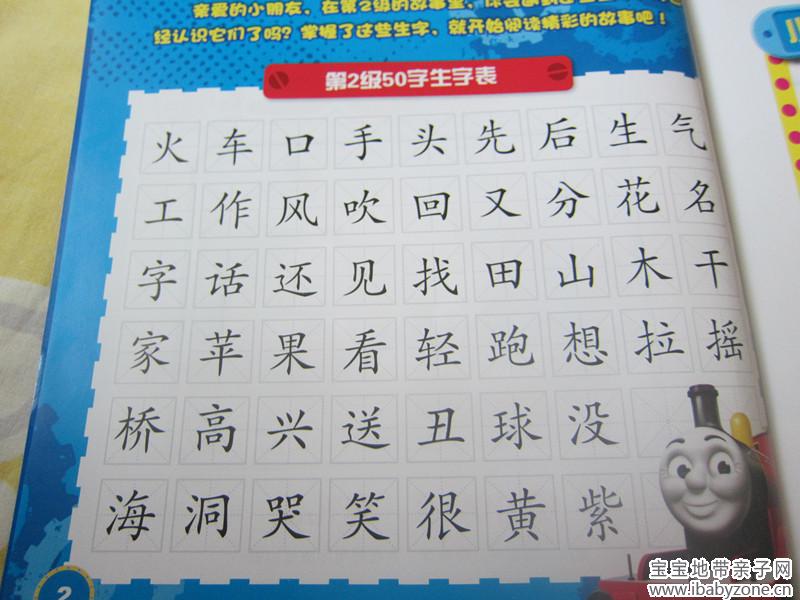 亲爱的小朋友，在第2级的故事里，你会
经认识它们了吗？掌握了这些生字，就开始阅读精彩的故事吧！
第2级50字生字表
火 车 口 手 头 先 后 生 气
工 作 风 吹 回 又 分 花 名
字 话 还 见 找 田 山 木 干
家 苹 果 看 轻 跑 想 拉 摇
桥 高 兴 送 丑 球 没
海 洞 哭 笑 很 黄 紫
2
宝宝地带亲子网
www.ibabyzone.cn